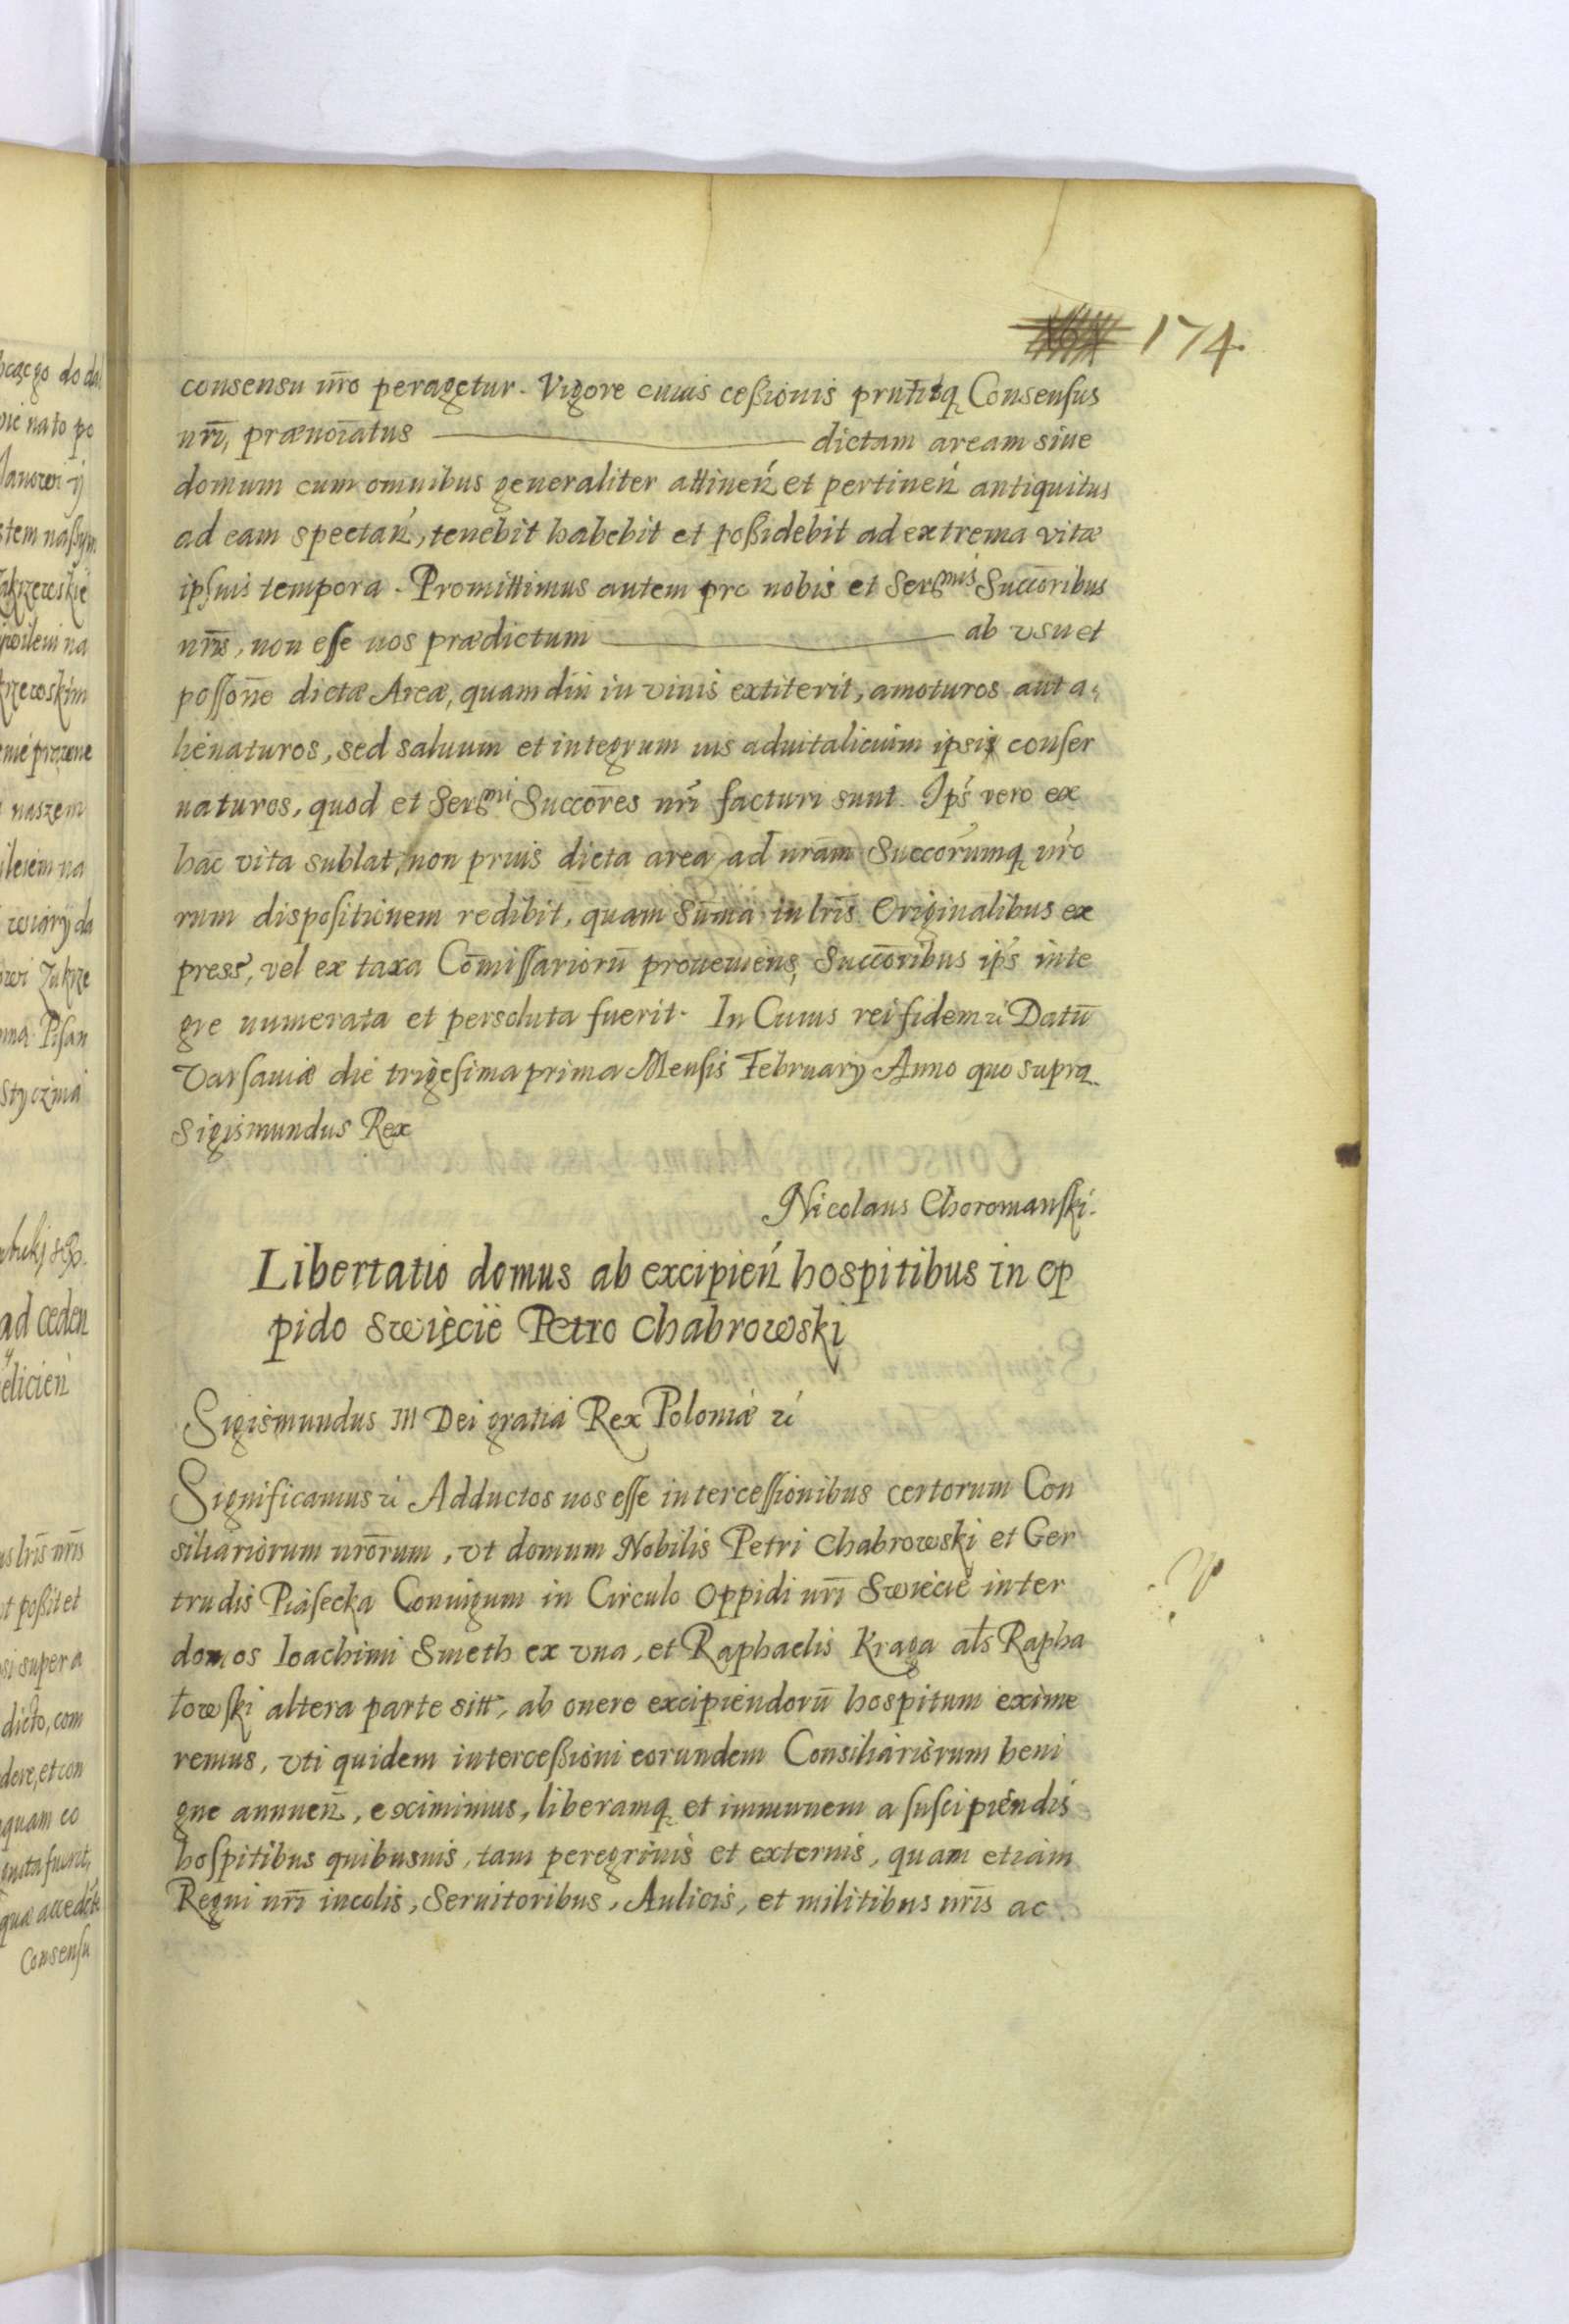 174.
consensu nr̃o peragetur. Vigore cuius ceßionis prñtisq̨ Consensus
nr̃i, prænoĩatus ——— dictam aream siue
domum cum omnibus generaliter attineń et pertineń antiquitus
ad eam spectań, tenebit habebit et poßidebit ad extrema vitæ
ipsius tempora. Promittimus autem pro nobis et Serᵐⁱˢ Succõribus
nr̃is, non esse nos prædictum ——— ab vsu et
possoñe dictæ Areæ, quamdiu in viuis extiterit, amoturos aut a,
lienaturos, sed saluum et integrum ius aduitalicium ipsi conser
uaturos, quod et Serᵐⁱ Succõres nr̃i facturi sunt. Ips̃ vero ex
hac vita sublat, non prius dicta area ad nrãm Succorũmq̨ nr̃o
rum dispositionem redibit, quam sum̃a in lr̃is Originalibus ex
press̃, vel ex taxa Com̃issariorũ proueniens, Succõribus ips̃ inte
gre numerata et persoluta fuerit. In Cuius rei fidem ɾc̃ Datũ
Varsauiæ die trigesima prima Mensis February Anno quo supra
Sigismundus Rex
Nicolaus Choromanski.
Libertatio domus ab excipień hospitibus in op
pido Swięcie Petro Chabrowski
Sigismundus III Dei gratia Rex Poloniæ ɾc̃
Significamus ɾc̃ Adductos nos esse intercessionibus certorum Con
siliariorum nrõrum, vt domum Nobilis Petri Chabrowski et Ger
trudis Piasecka Coniugum in Circulo Oppidi nr̃i Swiecie inter
domos Ioachimi Smeth ex vna, et Raphaelis Kraga als̃ Rapha
łowski altera parte sitt̃, ab onere excipiendorũ hospitum exime
remus, vti quidem interceßioni eorundem Consiliariorum beni
gne annueñ, eximimus, liberamq̨ et immunem a suscipiendis
hospitibus quibusuis, tam peregrinis et externis, quam etiam
Regni nr̃i incolis, Seruitoribus, Aulicis, et militibus nr̃is ac